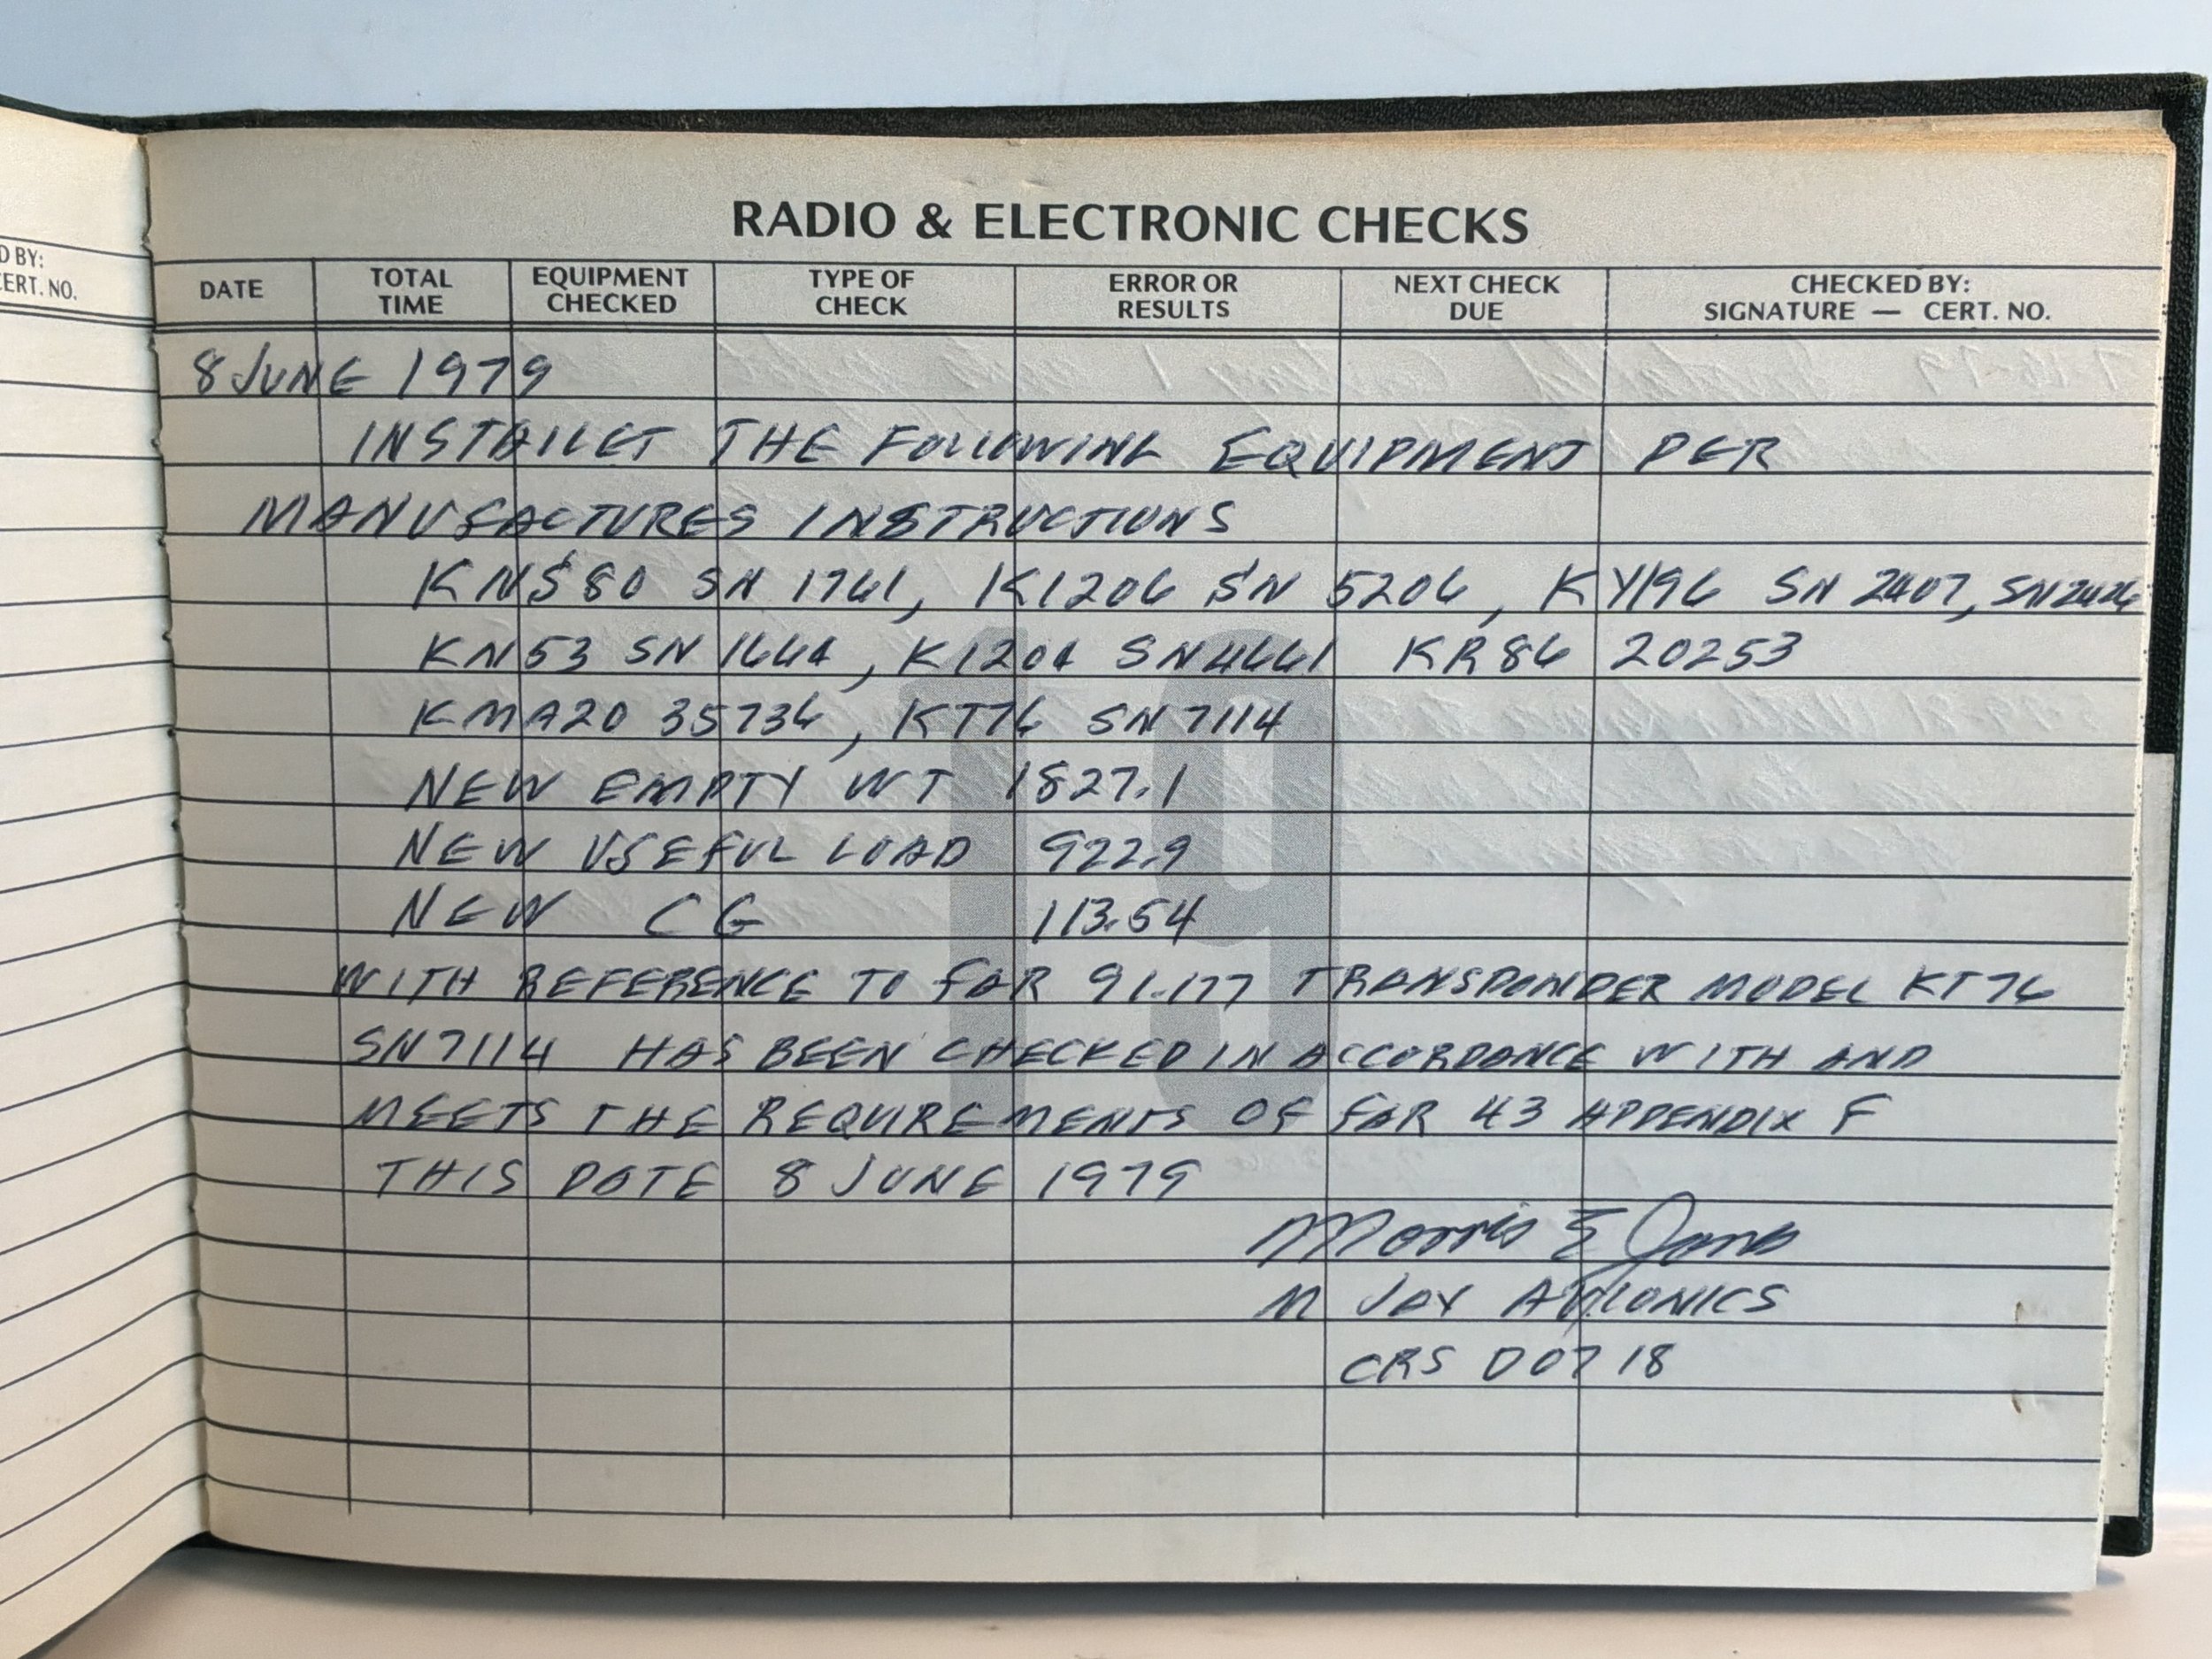 D BY:
CERT. NO.
RADIO & ELECTRONIC CHECKS
DATE
TOTAL TIME
EQUIPMENT CHECKED
TYPE OF CHECK
ERROR OR RESULTS
NEXT CHECK DUE
CHECKED BY: SIGNATURE — CERT. NO.
19
8 JUNE 1979
INSTALLET THE FOLLOWING EQUIPMENT PER
MANUFACTURES INSTRUCTIONS
KNS80 SN 1761, KI206 SN 5206, KY196 SN 2407, SN
KN53 SN 1664, KI204 SN 4661 KR86 20253
KMA20 35736, KT76 SN 7114
NEW EMPTY WT 1827.1
NEW USEFUL LOAD 922.9
NEW CG 113.54
WITH REFERENCE TO FAR 91.177 TRANSPONDER MODEL KT76
SN 7114 HAS BEEN CHECKED IN ACCORDANCE WITH AND
MEETS THE REQUIREMENTS OF FAR 43 APPENDIX F
THIS DATE 8 JUNE 1979
Morris E Jones
M JAY AVIONICS
CRS D07 18